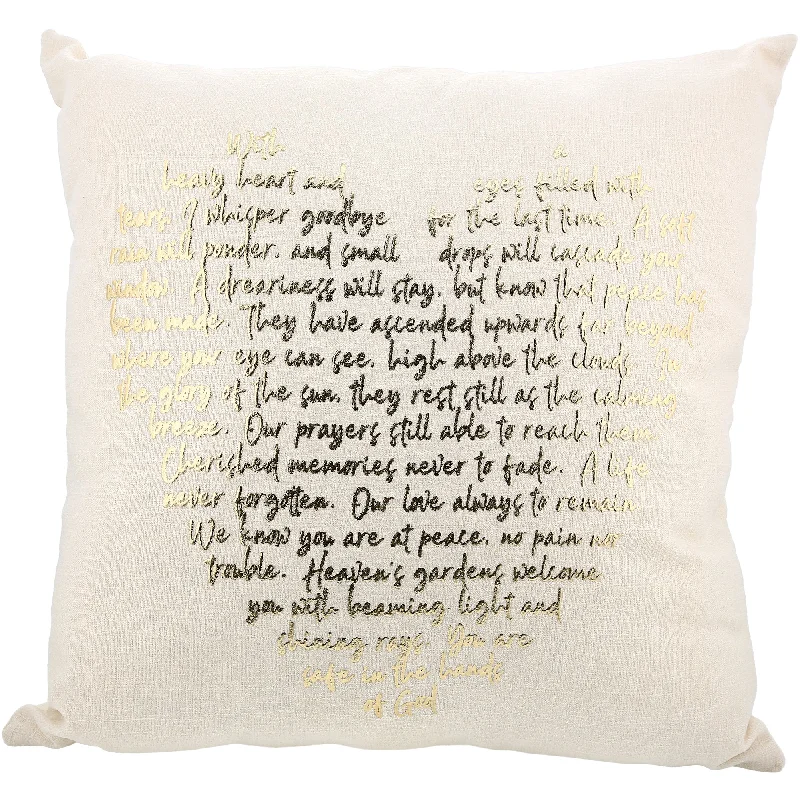 With a
heavy heart and eyes filled with
tears, I whisper goodbye for the last time. A soft
rain will ponder, and small drops will cascade your
window. A dreariness will stay, but know that peace has
been made. They have ascended upwards far beyond
where your eye can see, high above the clouds. In
the glory of the sun, they rest still as the calming
breeze. Our prayers still able to reach them.
Cherished memories never to fade. A life
never forgotten. Our love always to remain
We know you are at peace, no pain nor
trouble. Heaven's gardens welcome
you with beaming light and
shining rays. You are
safe in the hands
of God